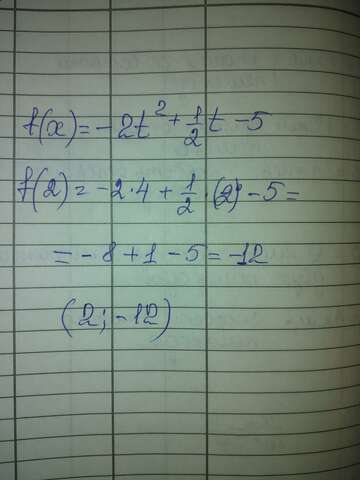 f(x)=-2t²+1/2t-5
f(2)=-2·4+1/2·(2)-5=
=-8+1-5=-12
(2;-12)